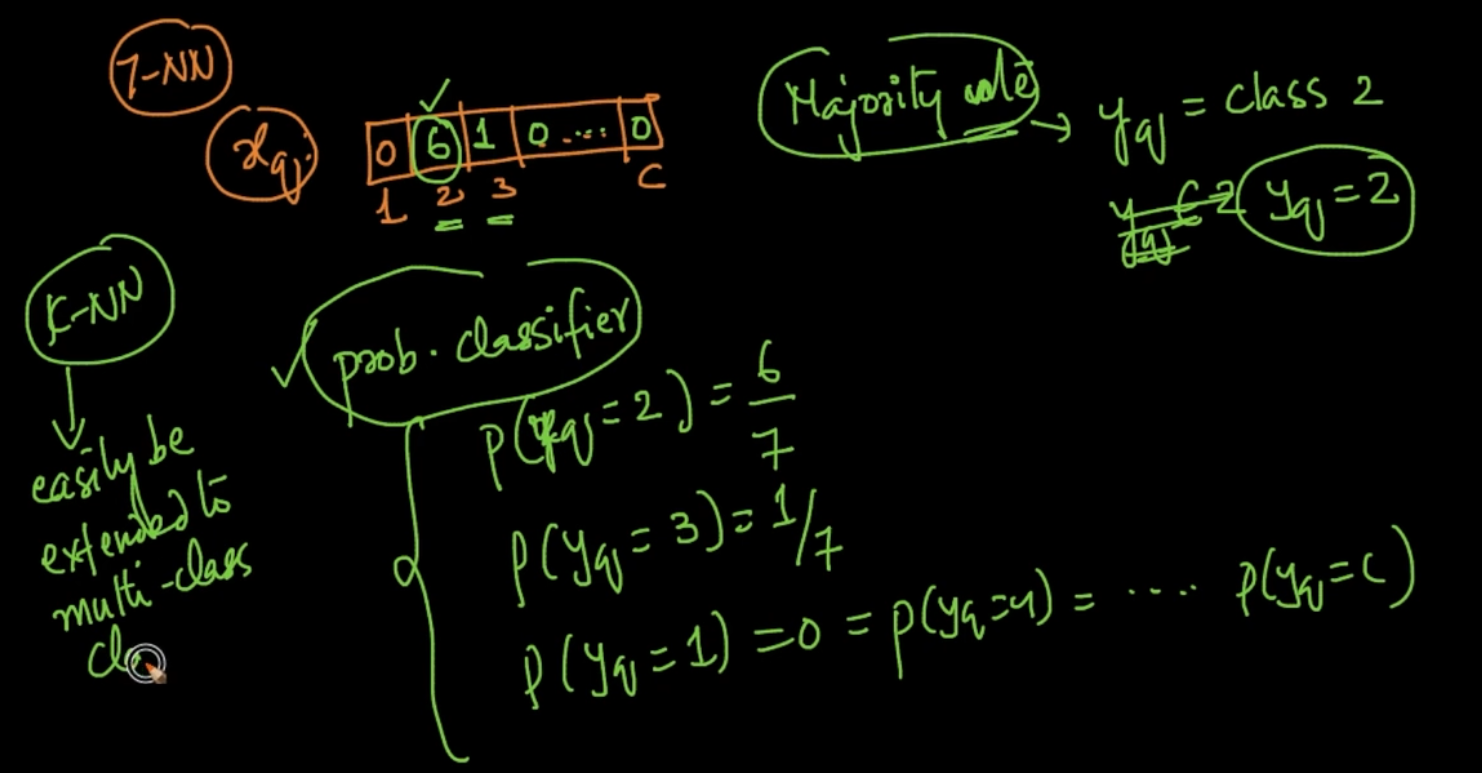 7-NN
xq
0 6 1 0 .... 0
1 2 3 C
Majority vote → yq = class 2
yq = 2
K-NN
easily be
extended to
multi-class
cla
prob. classifier
P(yq = 2) = 6/7
P(yq = 3) = 1/7
P(yq = 1) = 0 = P(yq = 4) = .... P(yq = C)